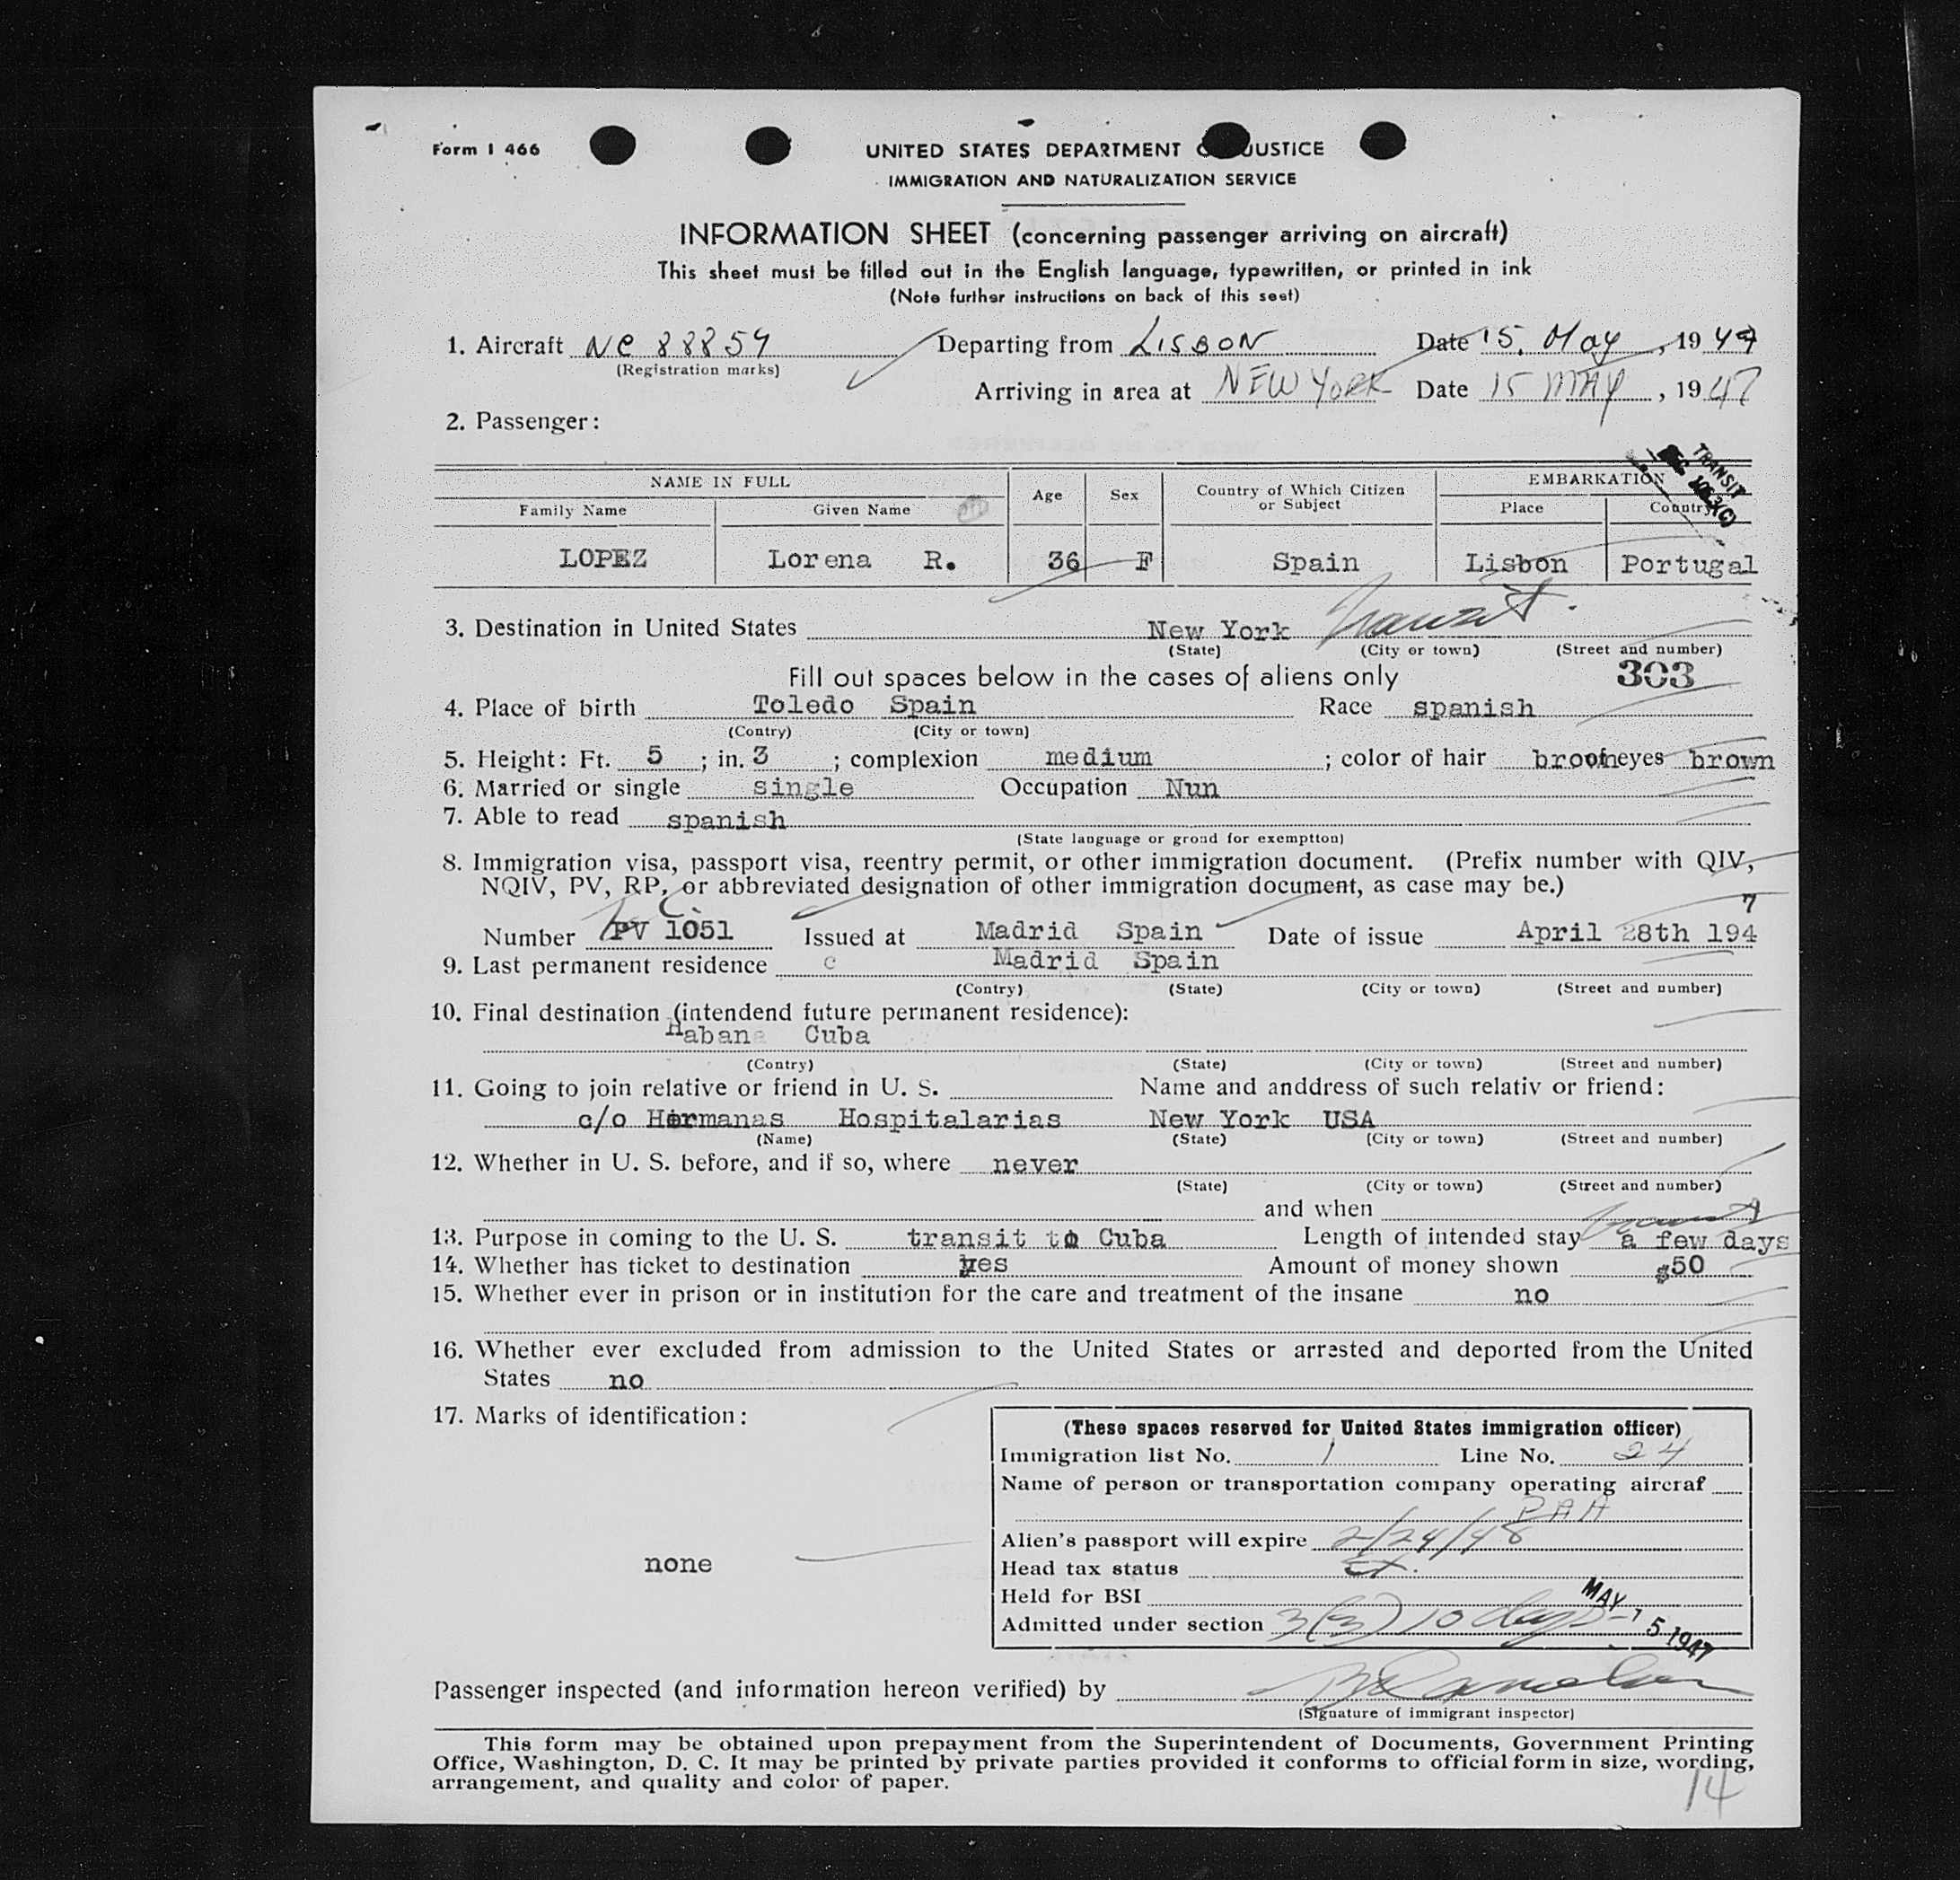 Form I 466
UNITED STATES DEPARTMENT O JUSTICE
IMMIGRATION AND NATURALIZATION SERVICE
INFORMATION SHEET (concerning passenger arriving on aircraft)
This sheet must be filled out in the English language, typewritten, or printed in ink
(Note further instructions on back of this seet)
1. Aircraft NC 88859 Departing from LISBON Date 15, May, 1947
(Registration marks)
Arriving in area at NEW YORK Date 15 MAY, 1947
2. Passenger:
TRANSIT
NAME IN FULL Age Sex Country of Which Citizen or Subject EMBARKATION
Family Name Given Name Place Country
LOPEZ Lorena R. 36 F Spain Lisbon Portugal
3. Destination in United States New York Transit.
(State) (City or town) (Street and number)
Fill out spaces below in the cases of aliens only 303
4. Place of birth Toledo Spain Race spanish
(Contry) (City or town)
5. Height: Ft. 5 ; in. 3 ; complexion medium ; color of hair eyes brown
6. Married or single single Occupation Nun
7. Able to read spanish
(State language or grond for exemption)
8. Immigration visa, passport visa, reentry permit, or other immigration document. (Prefix number with QIV,
NQIV, PV, RP, or abbreviated designation of other immigration document, as case may be.)
Number PV 1051 Issued at Madrid Spain Date of issue April 28th 1947
9. Last permanent residence c Madrid Spain
(Contry) (State) (City or town) (Street and number)
10. Final destination (intendend future permanent residence):
Habana Cuba
(Contry) (State) (City or town) (Street and number)
11. Going to join relative or friend in U. S. Name and anddress of such relativ or friend:
c/o Hermanas Hospitalarias New York USA
(Name) (State) (City or town) (Street and number)
12. Whether in U. S. before, and if so, where never
(State) (City or town) (Street and number)
and when
13. Purpose in coming to the U. S. transit to Cuba Length of intended stay a few days
14. Whether has ticket to destination yes Amount of money shown $50
15. Whether ever in prison or in institution for the care and treatment of the insane no
16. Whether ever excluded from admission to the United States or arrested and deported from the United
States no
17. Marks of identification:
none
(These spaces reserved for United States immigration officer)
Immigration list No. 1 Line No. 24
Name of person or transportation company operating aircraf
PAA
Alien's passport will expire 2/24/48
Head tax status Ex.
Held for BSI
Admitted under section 3(3) 10 days
MAY 15 1947
Passenger inspected (and information hereon verified) by
(Signature of immigrant inspector)
This form may be obtained upon prepayment from the Superintendent of Documents, Government Printing
Office, Washington, D. C. It may be printed by private parties provided it conforms to official form in size, wording,
arrangement, and quality and color of paper.
14